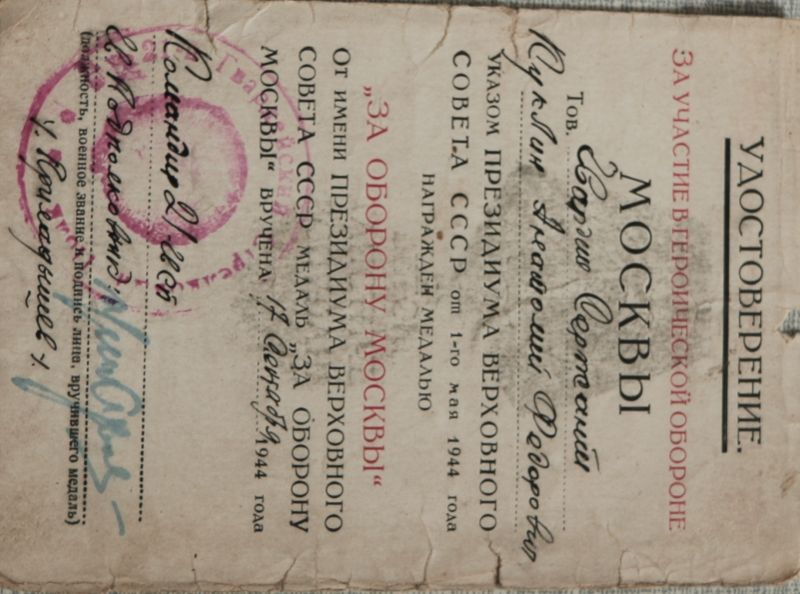 УДОСТОВЕРЕНИЕ.
ЗА УЧАСТИЕ В ГЕРОИЧЕСКОЙ ОБОРОНЕ
МОСКВЫ
Тов. Гвардии Сержант
Куклин Анатолий Федорович
УКАЗОМ ПРЕЗИДИУМА ВЕРХОВНОГО
СОВЕТА СССР от 1-го мая 1944 года
НАГРАЖДЕН МЕДАЛЬЮ
„ЗА ОБОРОНУ МОСКВЫ“
ОТ ИМЕНИ ПРЕЗИДИУМА ВЕРХОВНОГО
СОВЕТА СССР МЕДАЛЬ „ЗА ОБОРОНУ
МОСКВЫ“ ВРУЧЕНА 17 Октября 1944 года
Командир 21
Гв. Подполковник
(должность, военное звание и подпись лица, вручившего медаль)